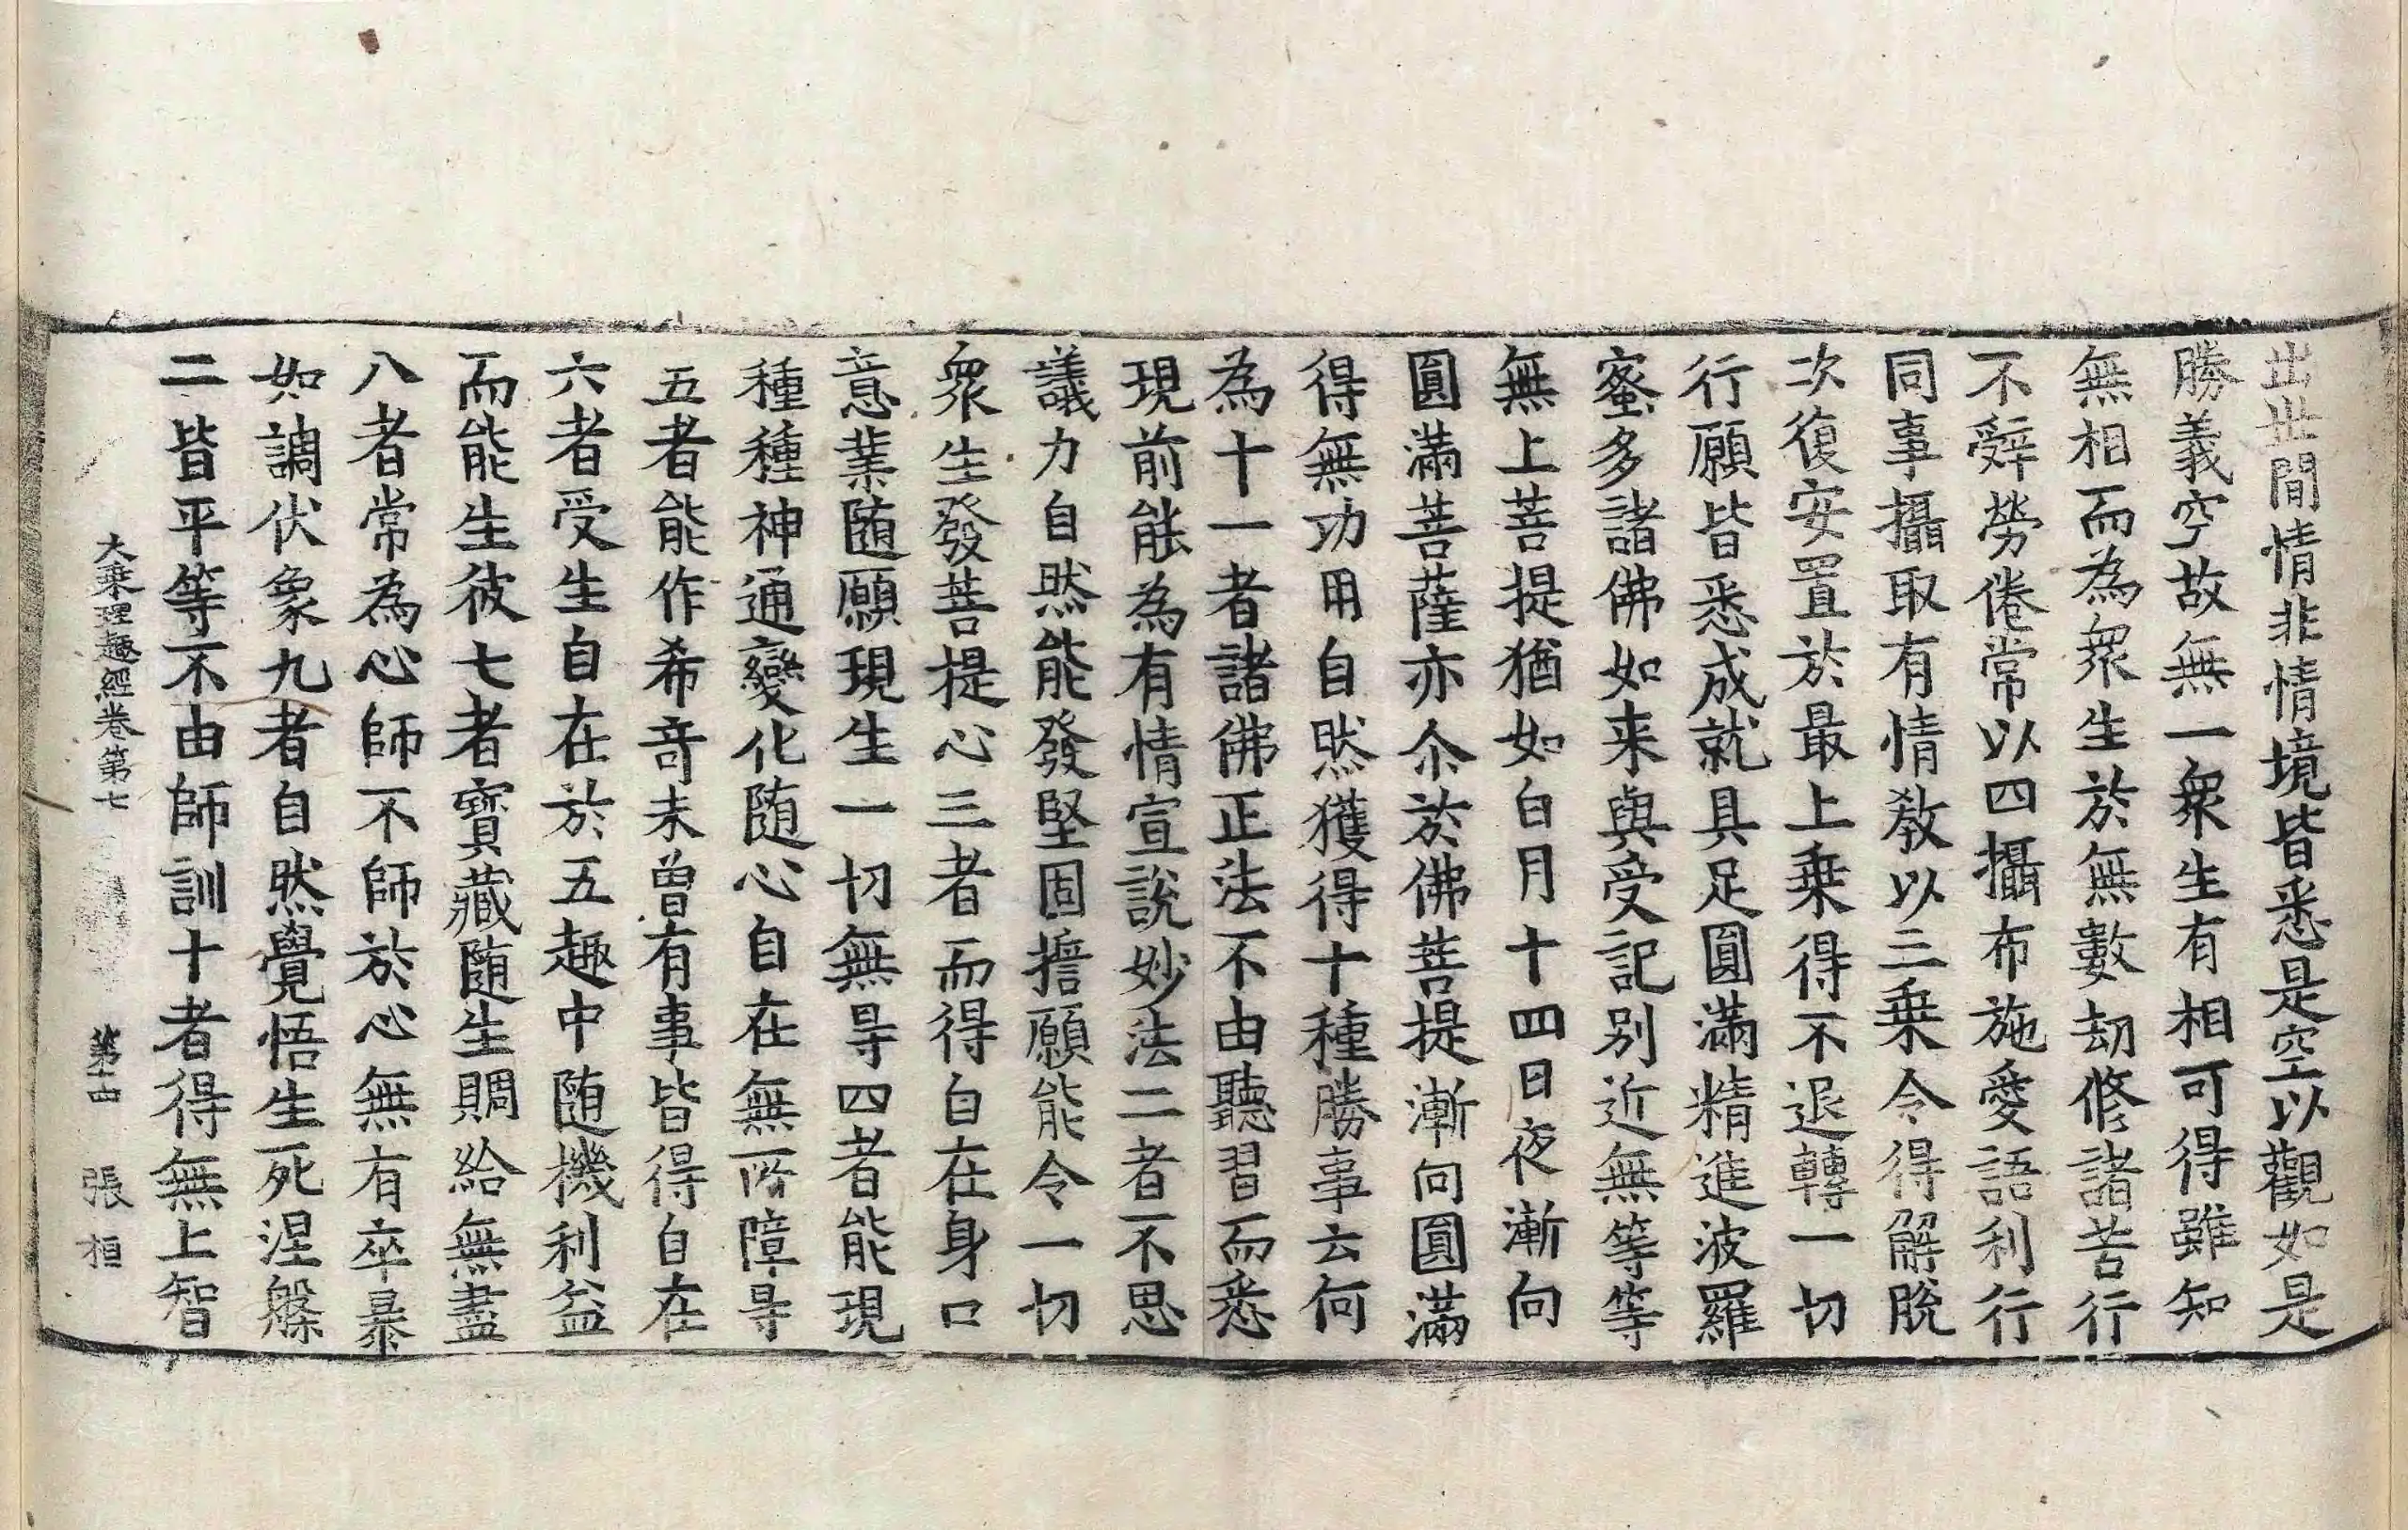 出世間情非情境皆悉是空以觀如是
勝義空故無一衆生有相可得雖知
無相而為衆生於無數劫修諸苦行
不辞勞倦常以四攝布施愛語利行
同事攝取有情教以三乗令得解脫
次復安置於最上乗得不退轉一切
行願皆悉成就具足圓滿精進波羅
蜜多諸佛如来與受記別近無等等
無上菩提猶如白月十四日夜漸向
圓滿菩薩亦尒於佛菩提漸向圓滿
得無功用自然獲得十種勝事云何
為十一者諸佛正法不由聽習而悉
現前能為有情宣說妙法二者不思
議力自然能發堅固擔願能令一切
衆生發菩提心三者而得自在身口
意業随願現生一切無㝵四者能現
種種神通變化随心自在無所障㝵
五者能作希竒未曾有事皆得自在
六者受生自在於五趣中随機利益
而能生彼七者寳藏随生賙給無盡
八者常為心師不師於心無有卒暴
如調伏象九者自然覺悟生死涅槃
二皆平等不由師訓十者得無上智
大乗理趣經卷第七 第 張 相